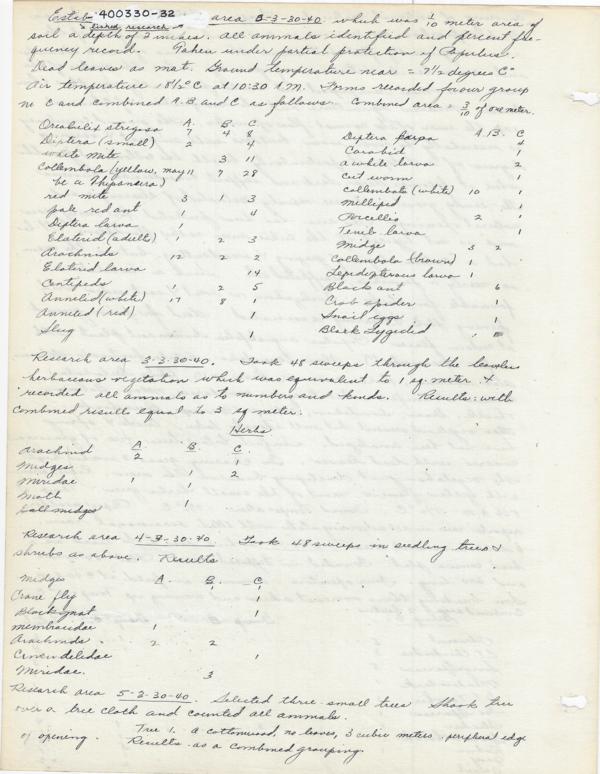 Estab- 400330-32 area B-3-30-40 which was 1/10 meter area of
lished research
soil a depth of 2 inches. All animals identified and percent fre-
quency record. Taken under partial protection of Populus.
Dead leaves as mat. Ground temperature near = 7 1/2 degrees C°
Air temperature 18 1/2° C at 10:30 A.M. Forms recorded for our group
in C and combined A. B. and C as follows. Combined area = 3/10 of one meter.
A. B. C
Oreohelix strigosa 7 4 8
Diptera (small) 2 4
white mite 3 11
Collembola (yellow, may 11 7 28
be a Thysanura)
red mite 3 1 3
pale red ant 1 4
Diptera larva 1
Elaterid (adults) 1 2 3
Arachnids 12 2 2
Elaterid larva 14
Centipeds 1 2 5
Annelid (white) 17 8 1
Annelid (red) 1
Slug 1
A. B. C
Diptera 4
Carabid 1
a white larva 2
cut worm 1
collembola (white) 10 1
Milliped 1
Porcellio 2 1
Tenib larva 1
Midge 3 2
Collembola (brown) 1
Lepidopterous larva 1
Black ant 6
Crab spider 1
Snail eggs 1
Black Lygidid 1
Research area 3-3-30-40. Took 48 sweeps through the leafless
herbaceous vegetation which was equivalent to 1 sq. meter &
recorded all animals as to numbers and kinds. Results: with
combined results equal to 3 sq meter.
Herbs
A B. C.
Arachnid 2 1
Midges 1 2
Miridae 1 1
Moth 1
Gall midges
Research area 4-3-30-40. Took 48 sweeps in seedling trees &
shrubs as above. Results
A. B. C
Midges 1 1
Crane fly 1
Black gnat 1
membracidae 1
Arachnids 2 2
Cicindelidae 1
Miridae. 3
Research area 5-3-30-40. Selected three small trees Shook tree
over a tree cloth and counted all animals.
Tree 1. a cottonwood, no leaves, 3 cubic meters. peripheral edge
of opening. Results as a combined grouping.